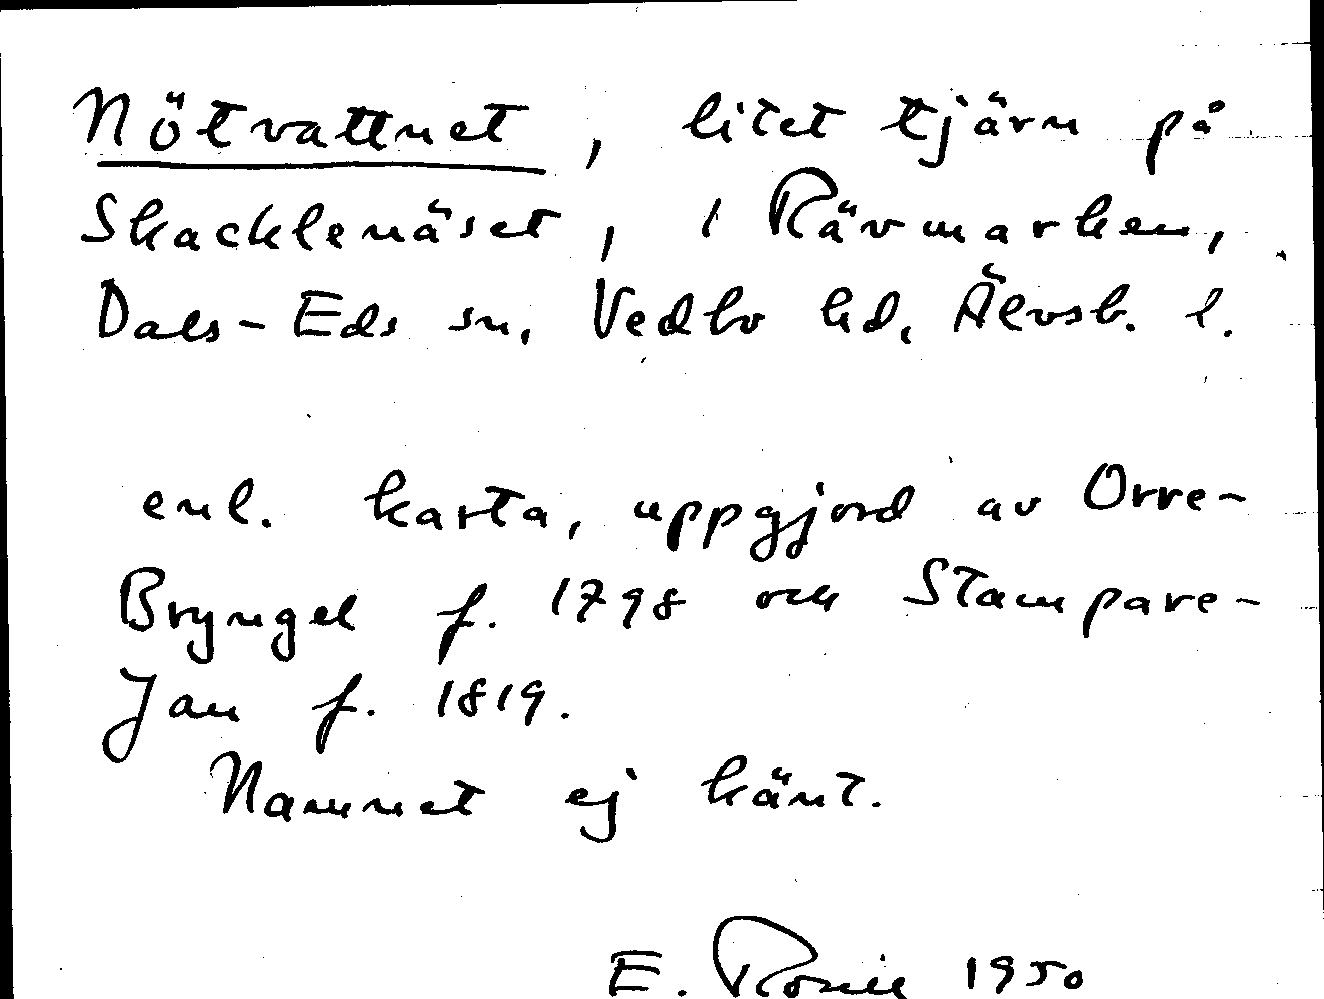 Nötvattnet, litet tjärn på
Skacklenäset, i Rävmarken,
Dals-Eds sn, Vedbo hd, Älvsb. l.
enl. karta, uppgjord av Orre-
Bryngel f. 1798 och Stampare-
Jan f. 1819.
Namnet ej känt.
E. 1950